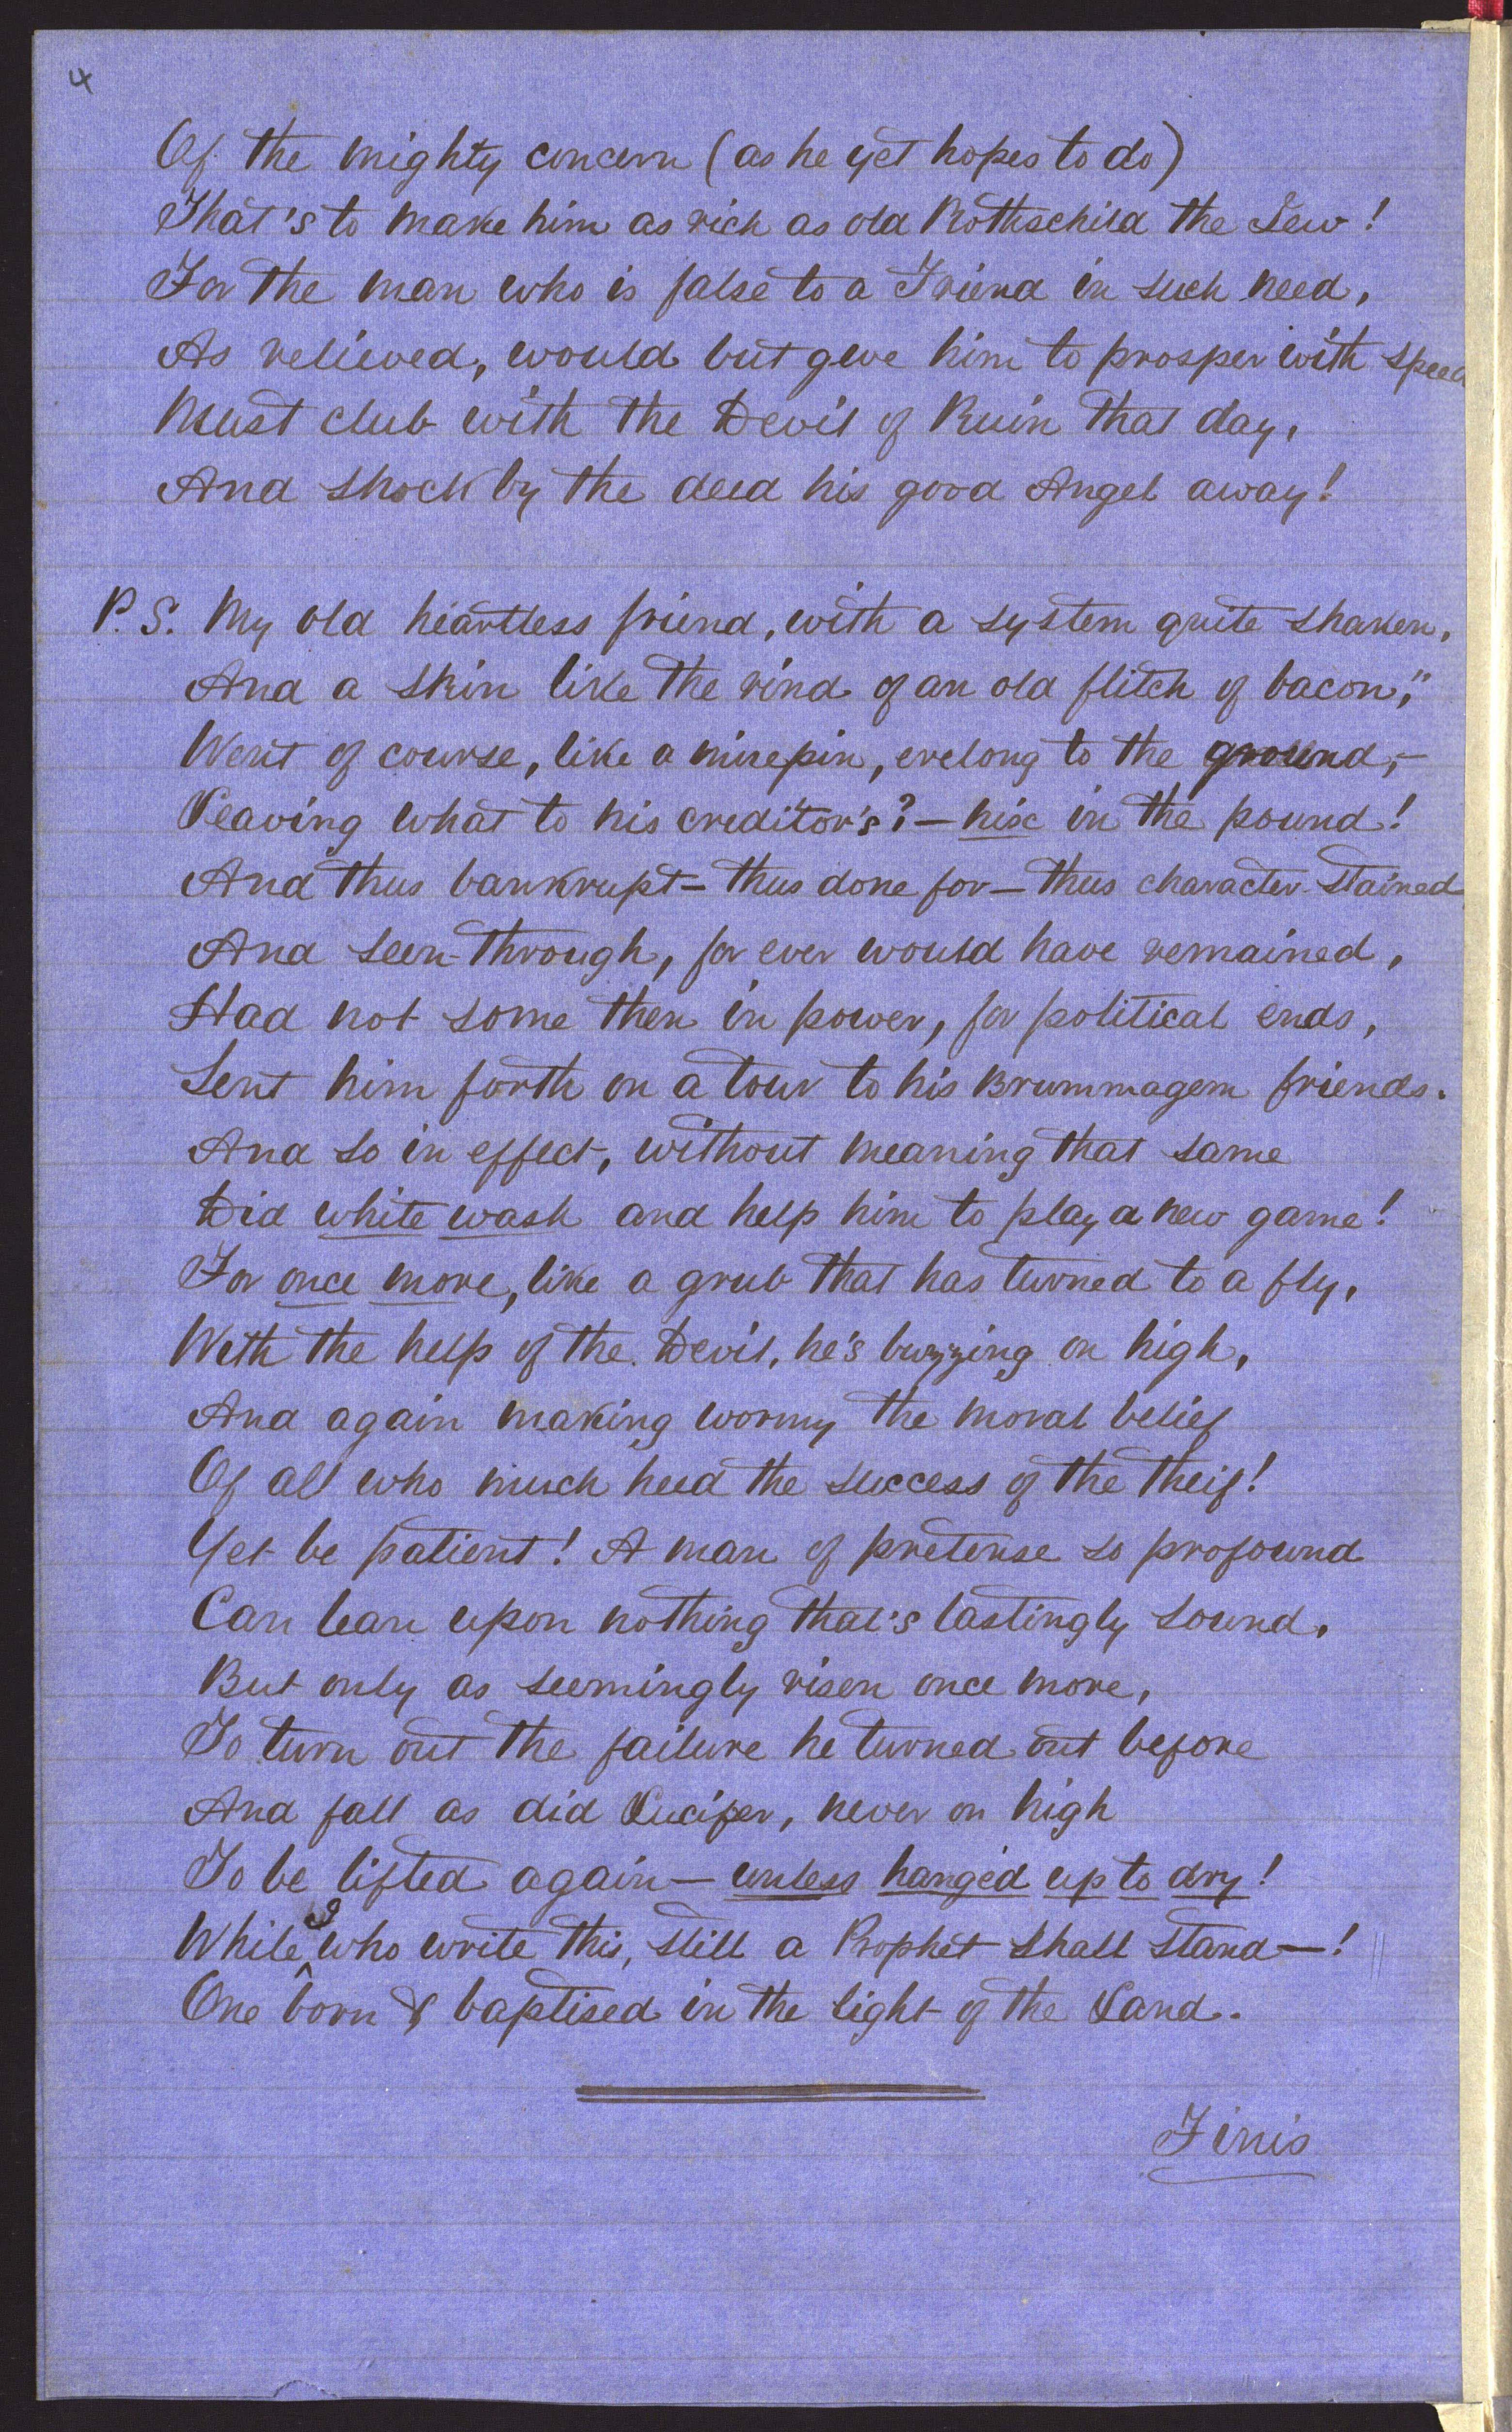 4
Of the mighty concern (as he yet hopes to do)
That's to make him as rich as old Rothschild the Jew!
For the man who is false to a Friend in such need,
As relieved, would but give him to prosper with speed
Must club with the Devil of Ruin that day,
And shock by the deed his good Angel away!
P.S. My old heartless friend, with a system quite shaken,
And a skin like the rind of an old flitch of bacon,"
Went of course, like a ninepin, erelong to the ground,—
Leaving what to his creditor's?— nix in the pound!
And thus bankrupt— thus done for— thus character-stained
And seen-through, for ever would have remained,
Had not some then in power, for political ends,
Sent him forth on a tour to his Brummagem friends.
And so in effect, without meaning that same
Did white wash and help him to play a new game!
For once more, like a grub that has turned to a fly,
With the help of the Devil, he's buzzing on high,
And again making wormy the moral belief
Of all who much heed the success of the theif!
Yet be patient! A man of pretense so profound
Can lean upon nothing that's lastingly sound,
But only as seemingly risen once more,
To turn out the failure he turned out before
And fall as did Lucifer, never on high
To be lifted again— unless hang'd up to dry!
While I who write this, still a Prophet shall stand—!
One born & baptised in the light of the Land.
Finis